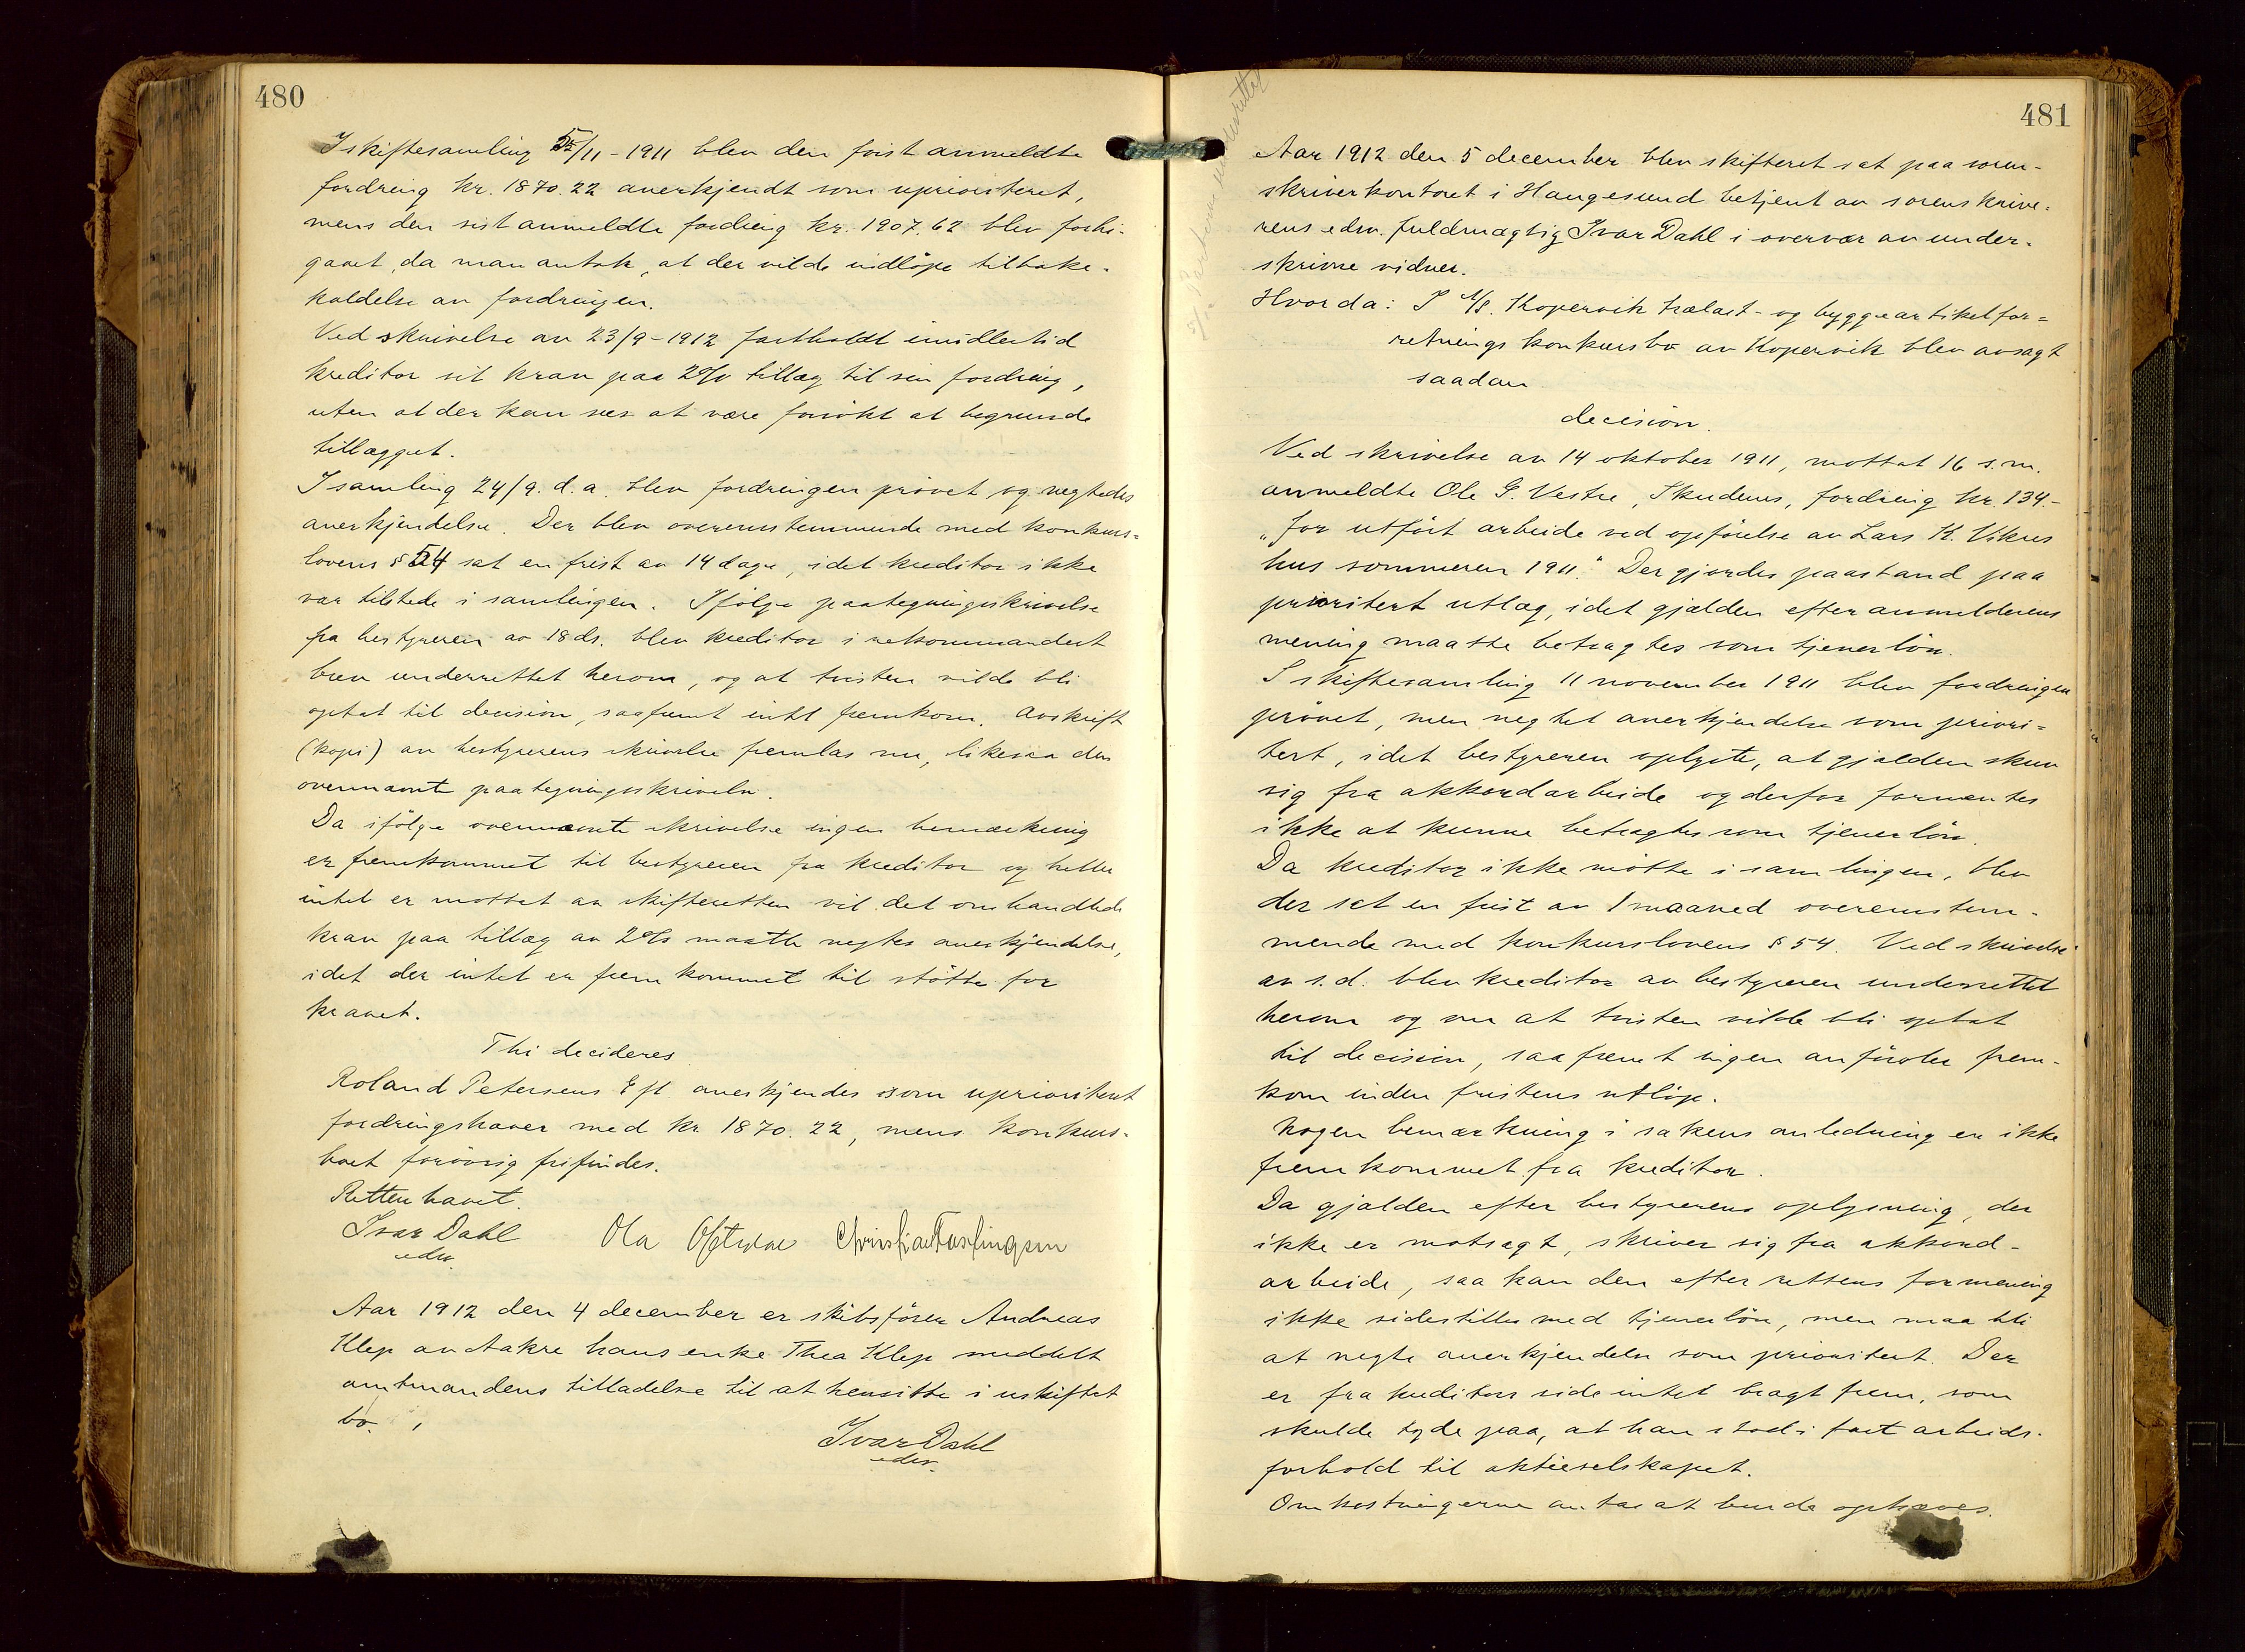 480
I skiftesamling 5/11 - 1911 blev den først anmeldte
fordring kr. 1870.22 anerkjendt som uprioriteret,
mens den sist anmeldte fordring kr. 1907.62 blev forbi-
gaaet, da man antok, at der vilde indløpe tilbake-
kaldelse av fordringen.
Ved skrivelse av 23/9 - 1912 fastholdt imidlertid
kreditor sit krav paa 2% tillæg til sin fordring,
uten at der kan sees at være forsøkt at begrunde
tillægget.
I samling 24/9. d.a. blev fordringen prøvet og negtedes
anerkjendelse. Der blev overensstemmende med konkurs-
lovens § 54 sat en frist av 14 dage, idet kreditor ikke
var tilstede i samlingen. Ifølge paategningsskrivelse
fra bestyreren av 18 ds. blev kreditor i rekommandert
brev underrettet herom, og at tvisten vilde bli
optat til decision, saafremt intet fremkom. Avskrift
(kopi) av bestyrerens skrivelse fremlas nu, likesaa den
overnævnte paategningsskrivelse.
Da ifølge ovennævnte skrivelse ingen bemærkning
er fremkommet til bestyreren fra kreditor og heller
intet er mottat av skifteretten vil det omhandlede
krav paa tillæg av 2% maatte negtes anerkjendelse,
idet der intet er fremkommet til støtte for
kravet.
Thi decideres
Roland Petersens Eft. anerkjendes som uprioritert
fordringshaver med kr 1870.22, mens konkurs-
boet forøvrig frifindes.
Retten hævet.
Ivar Dahl
edsv.
Ola
Aar 1912 den 4 december er skibsfører Andreas
Klep av Aakre hans enke Thea Klep meddelt
amtmandens tilladelse til at hensitte i uskiftet
bo.
Ivar Dahl
edsv.
481
Aar 1912 den 5 december blev skifteret sat paa soren-
skriverkontoret i Haugesund betjent av sorenskrive-
rens edsv. fuldmægtig Ivar Dahl i overvær av under-
skrivne vidner.
Hvorda: I A/S. Kopervik trælast- og byggeartikelfor-
retnings konkursbo av Kopervik blev avsagt
saadan
decision.
Ved skrivelse av 14 oktober 1911, mottat 16 s.m.
anmeldte Ole G. Vestre, Skudenes, fordring kr. 134.-
„for utført arbeide ved opførelse av Lars K. Vikres
hus sommeren 1911." Der gjordes paastand paa
prioritert utlæg, idet gjælden efter anmelderens
mening maatte betragtes som tjenerløn.
I skiftesamling 11 november 1911 blev fordringen
prøvet, men negtet anerkjendelse som priori-
tert, idet bestyreren oplyste, at gjælden skrev
sig fra akkordarbeide og derfor formentes
ikke at kunne betragtes som tjenerløn.
Da kreditor ikke møtte i samlingen, blev
der sat en frist av 1 maaned overensstem-
mende med konkurslovens § 54. Ved skrivelse
av s.d. blev kreditor av bestyreren underrettet
herom og om at tvisten vilde bli optat
til decision, saafremt ingen anførsler frem-
kom inden fristens utløp.
Nogen bemærkning i sakens anledning er ikke
fremkommet fra kreditor.
Da gjælden efter bestyrerens oplysning, der
ikke er motsagt, skriver sig fra akkord-
arbeide, saa kan den efter rettens formening
ikke sidestilles med tjenerløn, men maa bli
at negte anerkjendelse som prioritert. Der
er fra kreditors side intet bragt frem, som
skulde tyde paa, at han stod i fast arbeids-
forhold til aktieselskapet.
Omkostningerne antas at burde ophæves.